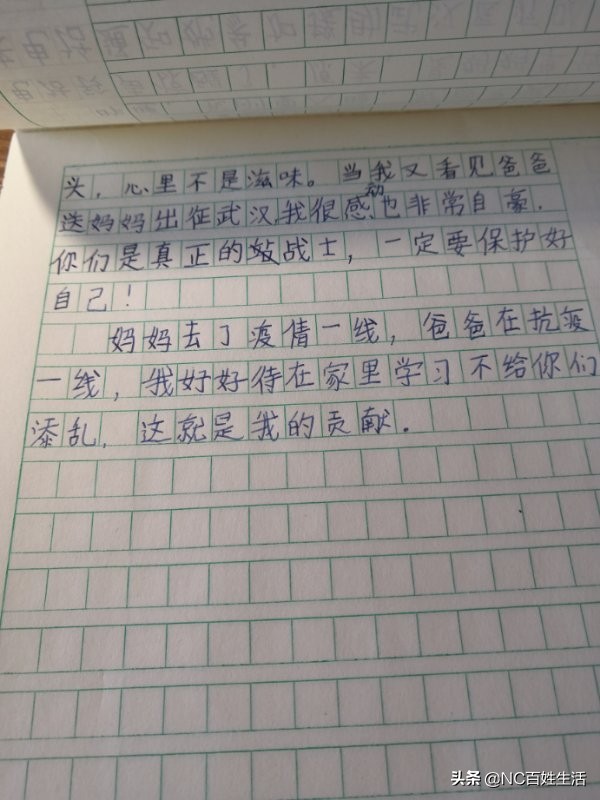 头，心里不是滋味。当我又看见爸爸
送妈妈出征武汉,我很感动也非常自豪.
你们是真正的战士，一定要保护好
自己！
妈妈去了疫情一线，爸爸在抗疫
一线，我好好待在家里学习不给你们
添乱，这就是我的贡献.
头条 @NC百姓生活